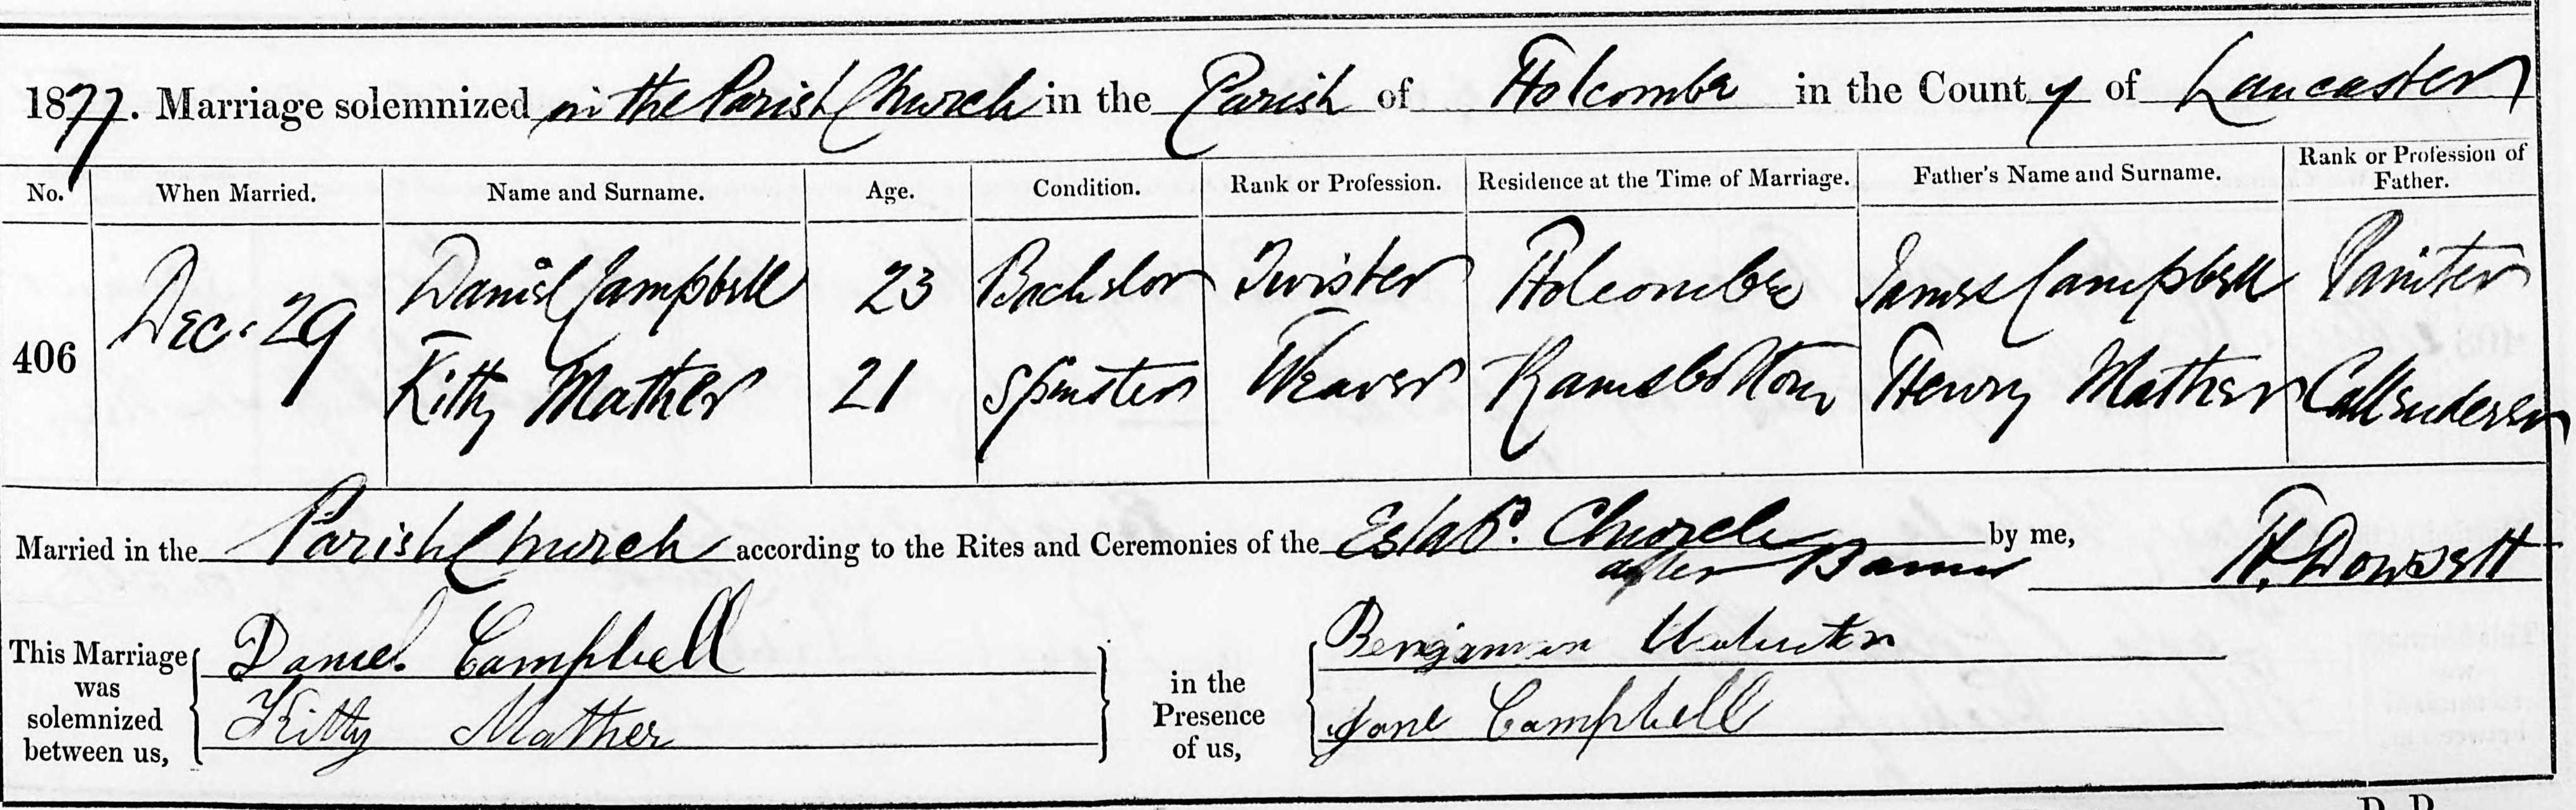 1877. Marriage solemnized in the Parish Church in the Parish of Holcombe in the County of Lancaster
No. When Married. Name and Surname. Age. Condition. Rank or Profession. Residence at the Time of Marriage. Father's Name and Surname. Rank or Profession of Father.
406 Dec. 29 Daniel Campbell 23 Bachelor Twister Holcombe James Campbell Painter
Kitty Mather 21 Spinster Weaver Ramsbottom Henry Mather Callenderer
Married in the Parish Church according to the Rites and Ceremonies of the Estabd. Church by me,
after Banns H. Dowsett
This Marriage was solemnized between us, Daniel Campbell in the Presence of us, Benjamin
Kitty Mather Jane Campbell